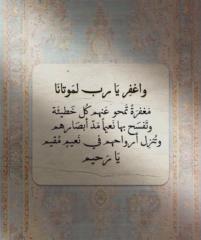 واغفِر يَا رب لمَوتانَا
مَغفرةً تَمحو عَنهم كُل خَطيئَة
وتَفسَح بهَا نَعيماً مَدّ أبصَارهم
وتُنزل أرواحهم في نَعيمٍ مُقيم
يَا رَحيم